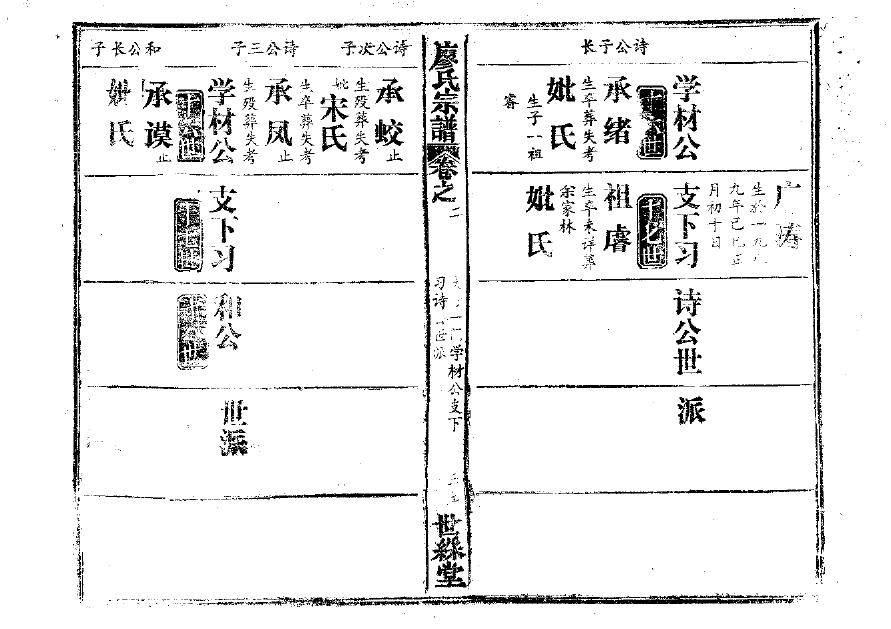 诗公子长
学材公
支下习
诗公世
派
十六世
承绪
生卒葬失考
妣氏
生子一祖
睿
广涛
生於一九八
九年己巳正
月初十日
十七世
祖睿
生卒未详葬
余家林
妣氏
廖氏宗譜卷之二
学材公支下
习诗公世派
世綵堂
诗公次子
承蛟止
生殁葬失考
妣宋氏
生卒葬失考
诗公三子
承凤止
生殁葬失考
学材公
支下习
和公
世派
十六世
十七世
和公长子
承谟止
妣氏